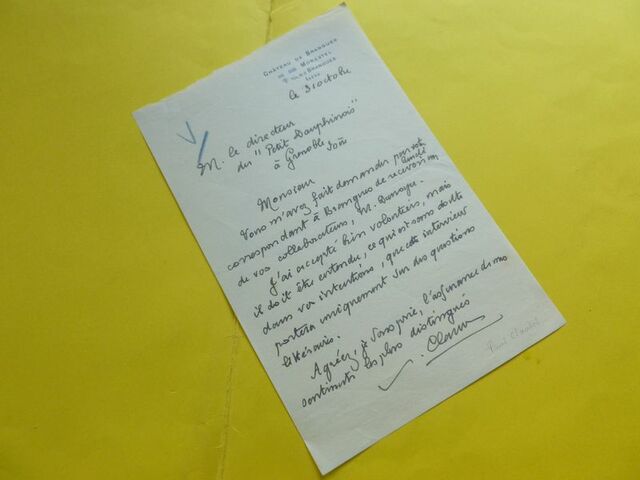 CHATEAU DE BRANGUES
MORESTEL
BRANGUES
ISÈRE
le 3 octobre
M. le directeur
du "Petit Dauphinois"
à Grenoble
Monsieur
Vous m'avez fait demander par votre
correspondant à Brangues de recevoir
de vos collaborateurs, M.
J'ai accepté bien volontiers, mais
il doit être entendu, ce qui est sans doute
dans vos intentions, que cette interview
portera uniquement sur des questions
littéraires.
Agréez, je vous prie, l'assurance de mes
sentiments les plus distingués
Claudel
Paul Claudel